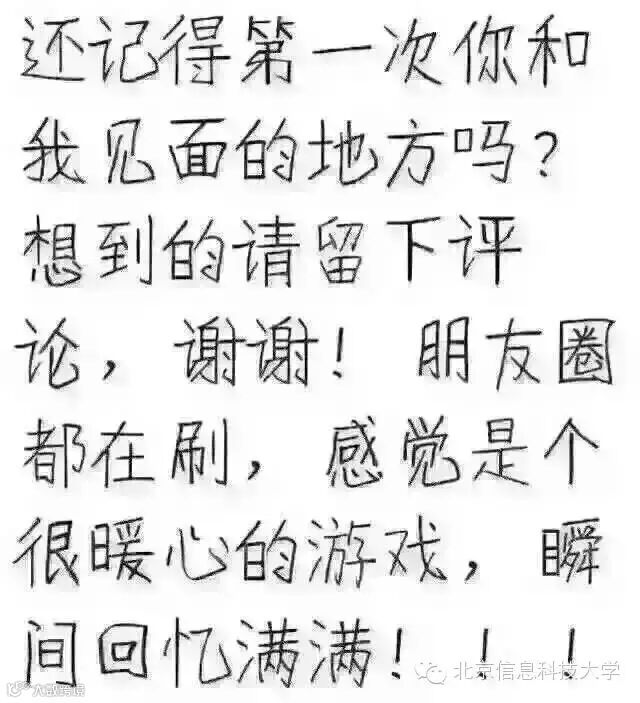 还记得第一次你和
我见面的地方吗?
想到的请留下评
论，谢谢! 朋友圈
都在刷，感觉是个
很暖心的游戏，瞬
间回忆满满!!!
北京信息科技大学
大数跨境